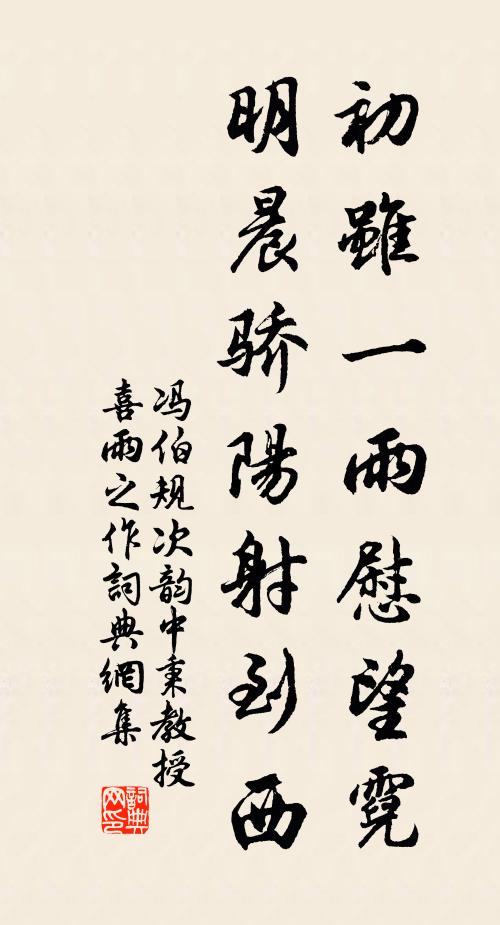 初雖一雨慰望霓
明晨骄陽射到西
冯伯规次韵中秉教授
喜雨之作詞典網集
詞典
网印